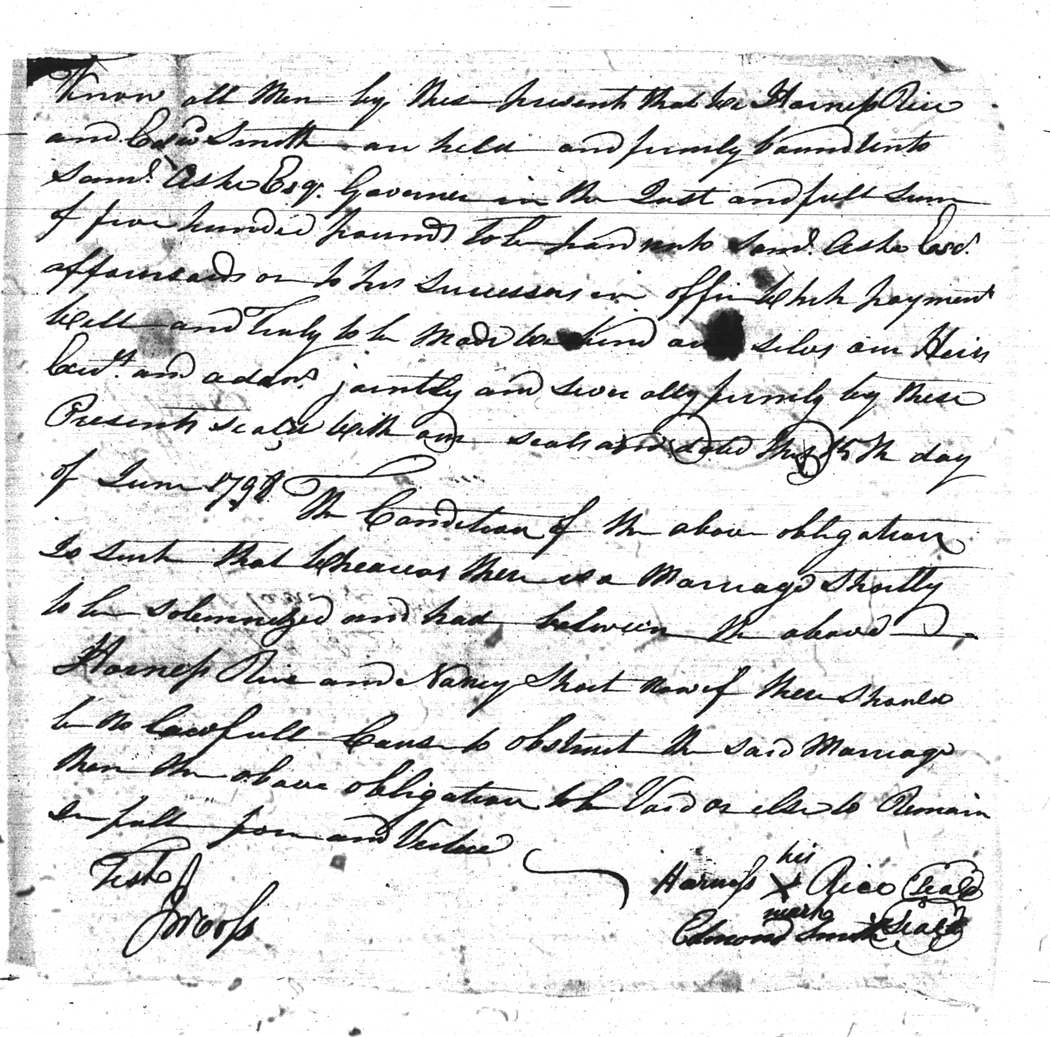 Know all Men by these presents that we Harness Rice
and Edwd Smith are held and firmly bound unto
Saml. Ashe Esqr. Governer in the Just and full Sum
of five hundred pounds to be paid unto Saml. Ashe Esqr.
afforesaid or to his Successors in office Which payment
Well and Truly to be Made We bind our selves our Heirs
Exrs. and admrs. jointly and severally firmly by these
Presents seald With our seals and dated this 15th day
of June 1798 The Condition of the above obligation
Is Such that Wheareas there is a Marriage Shortly
to be Solemnized and had between the above
Harness Rice and Nancy Short now if there Should
be no lawfull Cause to obstruct the said Marriage
then the above obligation to be Void or else to Remain
In full force and Vertue
Test
his
Harness X Rice (seal)
mark
Edmond Smith (seal)